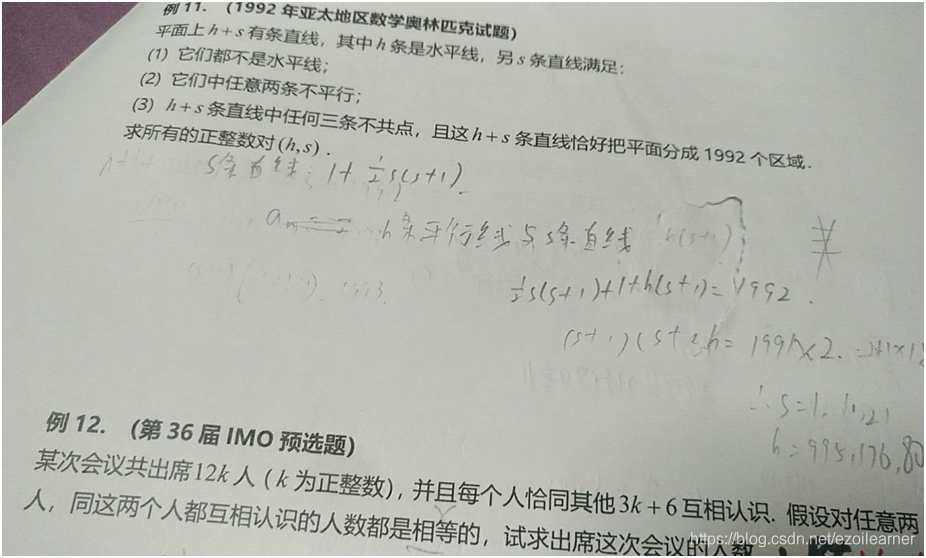 例 11. (1992 年亚太地区数学奥林匹克试题)
平面上 h + s 有条直线，其中 h 条是水平线，另 s 条直线满足：
(1) 它们都不是水平线；
(2) 它们中任意两条不平行；
(3) h + s 条直线中任何三条不共点，且这 h + s 条直线恰好把平面分成 1992 个区域.
求所有的正整数对 (h, s) .
s条直线: 1 + 1/2 s(s+1)
h 条平行线与s条直线 h(s+1)
1/2 s(s+1)+1+h(s+1)= 1992 .
= 1991×2.
∴ s=1, 11, 21
h = 995, 176, 80
例 12. (第 36 届 IMO 预选题)
某次会议共出席 12k 人 ( k 为正整数), 并且每个人恰同其他 3k + 6 互相认识. 假设对任意两
人，同这两个人都互相认识的人数都是相等的，试求出席这次会议的人数
https://blog.csdn.net/ezoilearner